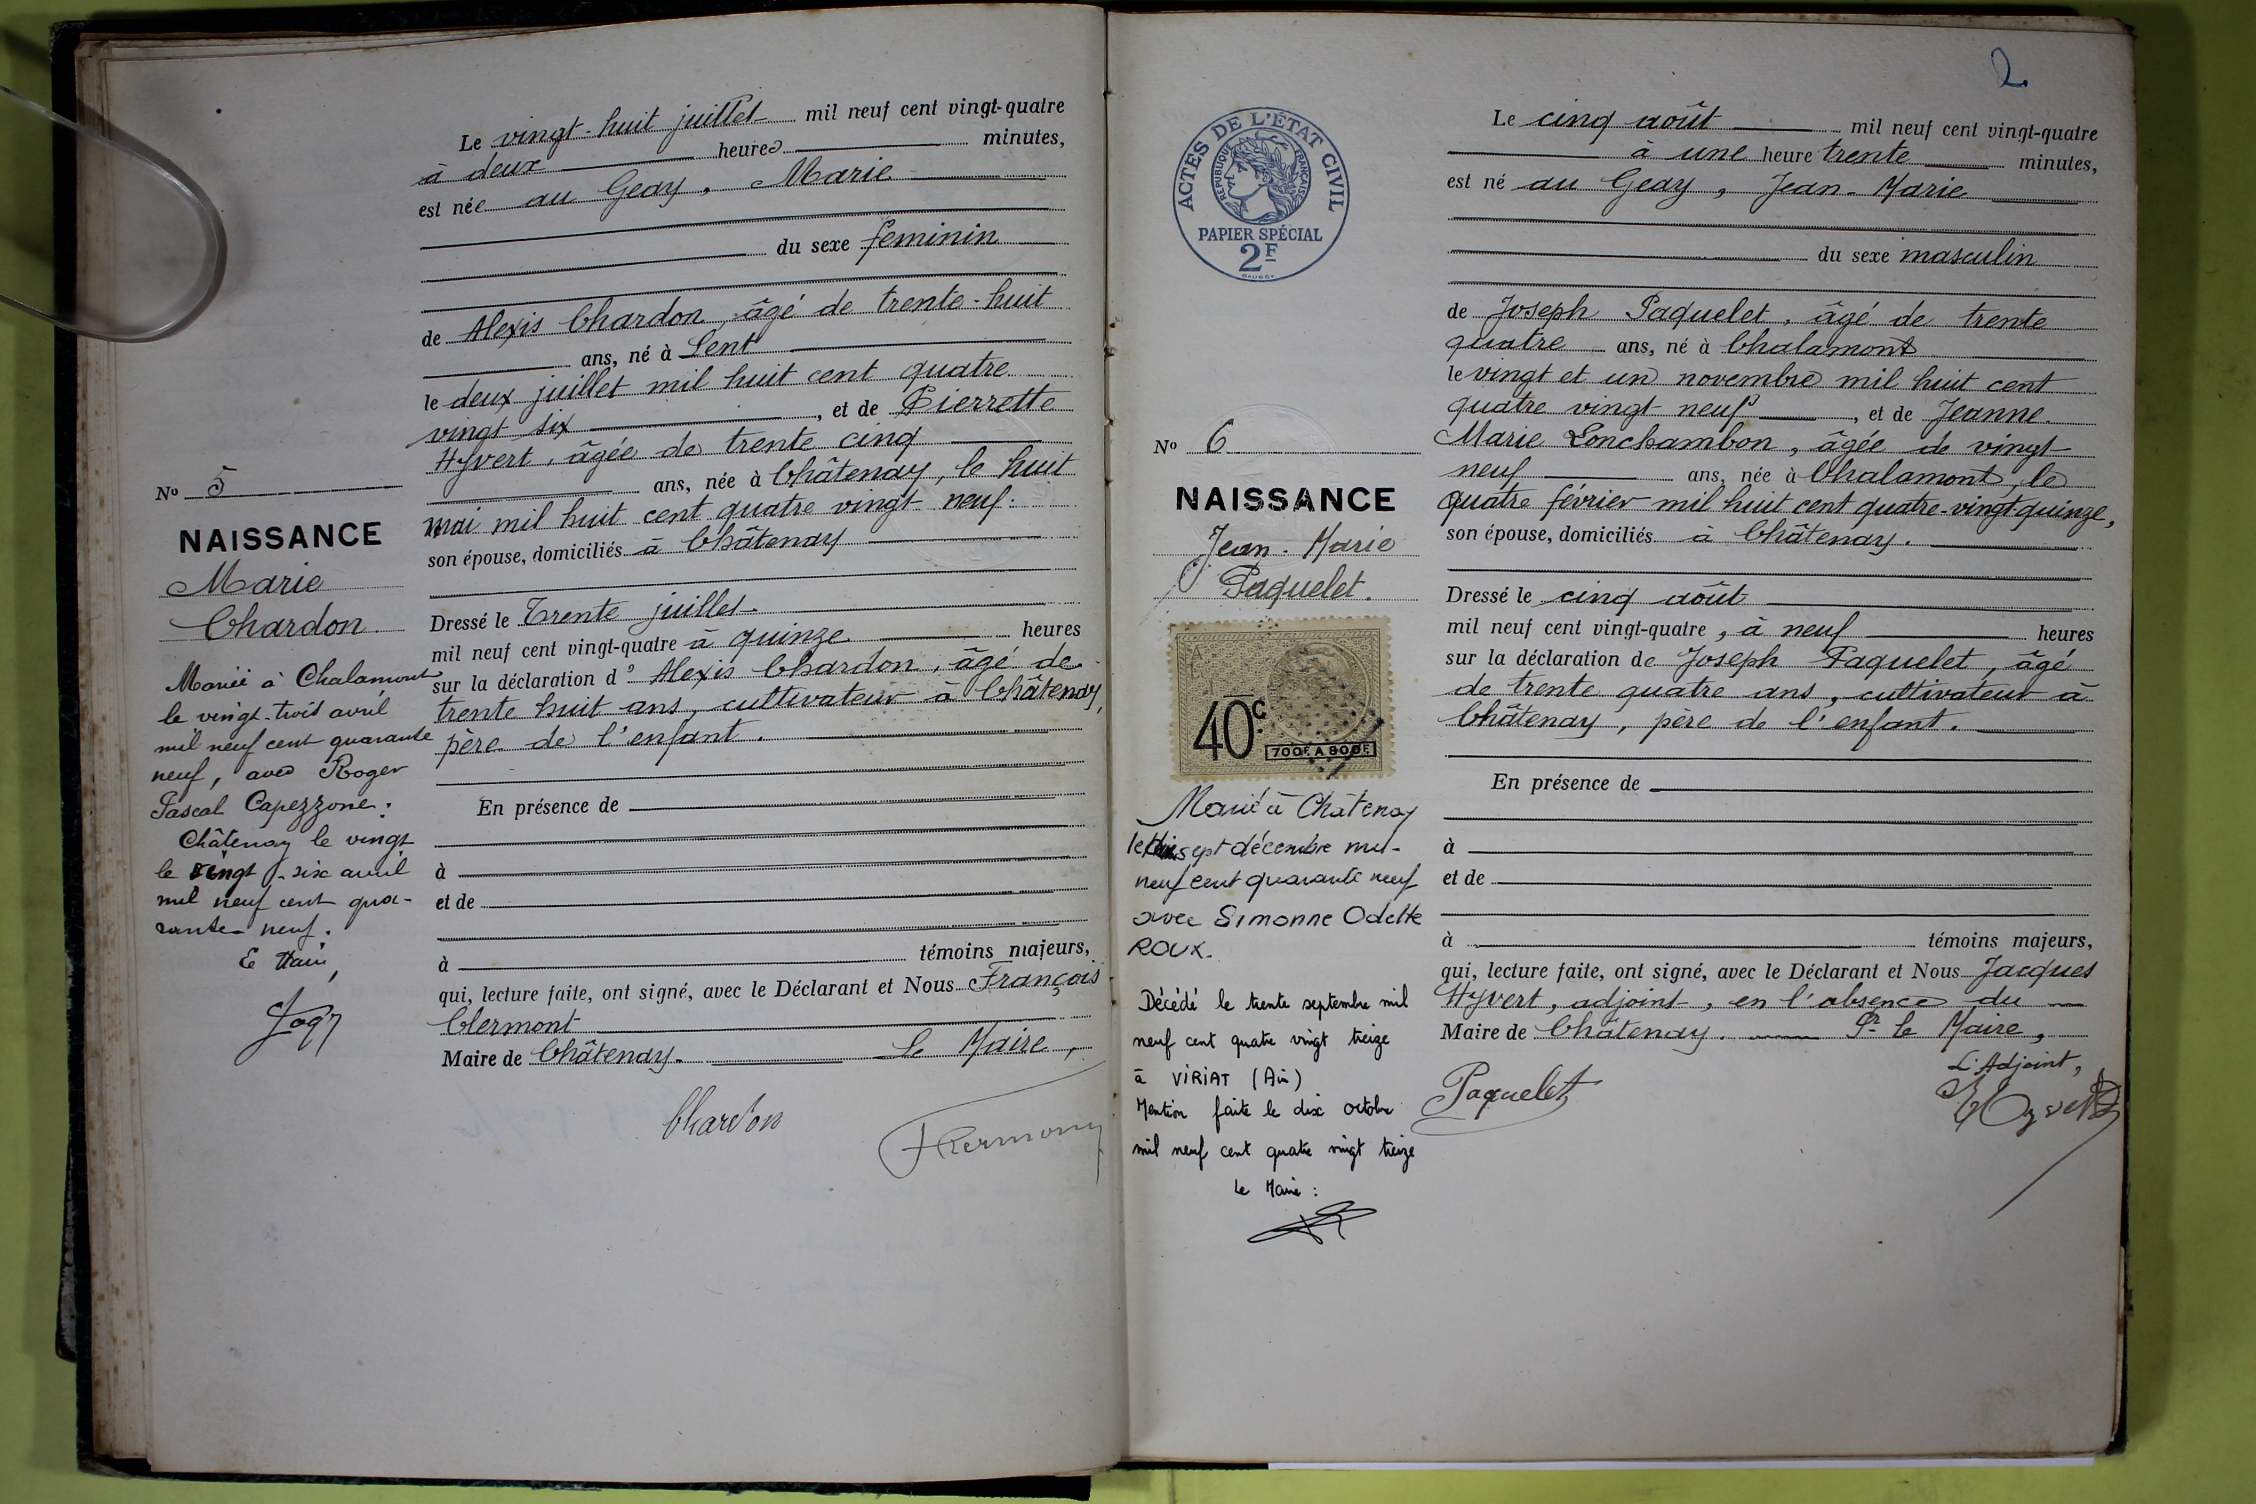 Le vingt-huit juillet mil neuf cent vingt-quatre
à deux heures minutes,
est née au Geay, Marie
du sexe feminin
de Alexis Chardon, âgé de trente-huit
ans, né à Lent
le deux juillet mil huit cent quatre
vingt six, et de Pierrette
Hyvert, âgée de trente cinq
ans, née à Châtenay, le huit
mai mil huit cent quatre vingt neuf.
son épouse, domiciliés à Châtenay
Dressé le Trente juillet.
mil neuf cent vingt-quatre à quinze heures
sur la déclaration d' Alexis Chardon, âgé de
trente huit ans, cultivateur à Châtenay,
père de l'enfant.
En présence de
à
et de
à témoins majeurs,
qui, lecture faite, ont signé, avec le Déclarant et Nous François
Clermont
Maire de Châtenay. Le Maire,
Chardon
FClermont
No 5
NAISSANCE
Marie
Chardon
Mariée à Chalamont
le vingt-trois avril
mil neuf cent quarante
neuf, avec Roger
Pascal Capezzone.
Châtenay le vingt
le vingt-six avril
mil neuf cent qua-
rante-neuf.
Le Maire,
2
ACTES DE L'ÉTAT CIVIL
RÉPUBLIQUE FRANÇAISE
PAPIER SPÉCIAL
2F
No 6
NAISSANCE
Jean-Marie
Paquelet.
40c
700F A 800F
Marié à Châtenay
le dix sept décembre mil-
neuf cent quarante neuf
avec Simonne Odette
ROUX.
Décédé le trente septembre mil
neuf cent quatre vingt treize
à VIRIAT (Ain)
Mention faite le dix octobre
mil neuf cent quatre vingt treize
Le Maire :
Le cinq août mil neuf cent vingt-quatre
à une heure trente minutes,
est né au Geay, Jean-Marie
du sexe masculin
de Joseph Paquelet, âgé de trente
quatre ans, né à Chalamont
le vingt et un novembre mil huit cent
quatre vingt neuf, et de Jeanne.
Marie Lonchambon, âgée de vingt
neuf ans, née à Chalamont, le
quatre février mil huit cent quatre-vingt-quinze,
son épouse, domiciliés à Châtenay.
Dressé le cinq août
mil neuf cent vingt-quatre, à neuf heures
sur la déclaration de Joseph Paquelet, âgé
de trente quatre ans, cultivateur à
Châtenay, père de l'enfant.
En présence de
à
et de
à témoins majeurs,
qui, lecture faite, ont signé, avec le Déclarant et Nous Jacques
Hyvert, adjoint, en l'absence du
Maire de Châtenay. Pr le Maire,
L'Adjoint,
Paquelet
Hyvert